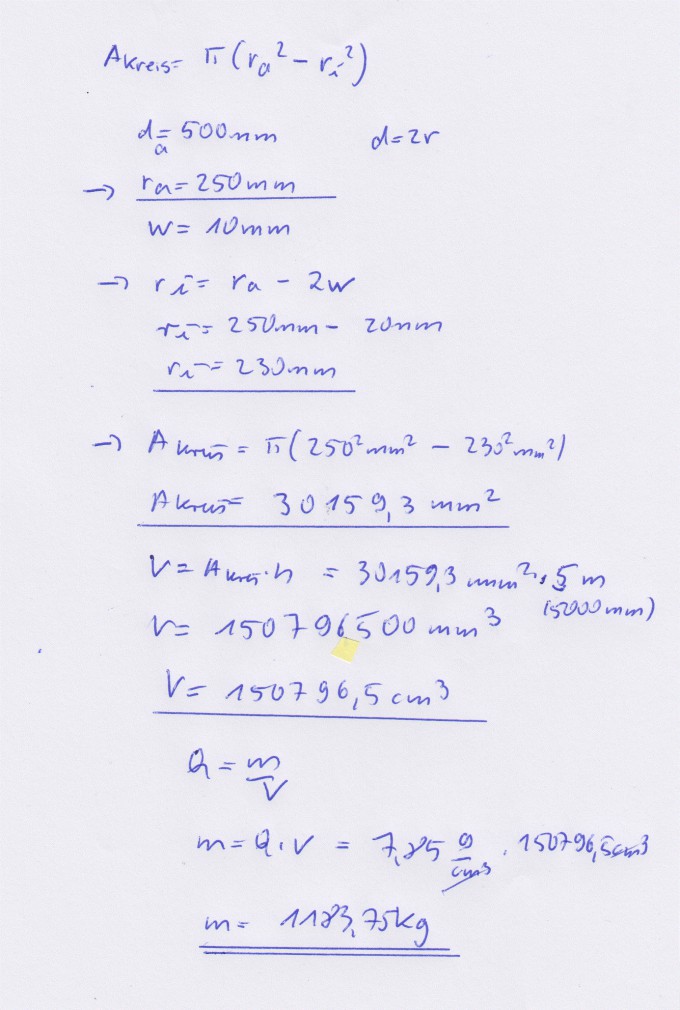 Akreis= π(ra² - ri²)
da = 500mm d=2r
→ ra=250mm
w= 10mm
→ ri= ra - 2w
ri= 250mm- 20mm
ri= 230mm
→ Akreis = π(250²mm² - 230²mm²)
Akreis= 30159,3 mm²
V= Akreis·h = 30159,3 mm²·5m
(5000mm)
V= 150796500 mm³
V= 150796,5 cm³
ρ = m/V
m= ρ·V = 7,85 g/cm³ · 150796,5cm³
m= 1183,75kg